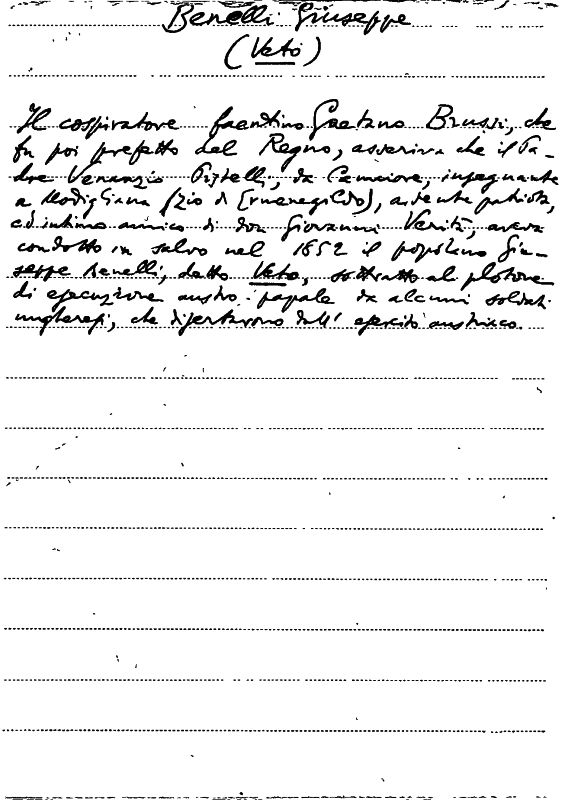 Benelli Giuseppe
(Veto)
Il cospiratore faentino Gaetano Brussi, che
fu poi prefetto del Regno, asseriva che il Pa-
dre Venanzio Pistelli, da Camaiore, insegnante
a Modigliana (zio di Ermenegildo), ardente patriota,
ed intimo amico di don Giovanni Verità, aveva
condotto in salvo nel 1852 il popolano Giu-
seppe Benelli, detto Veto, sottratto al plotone
di esecuzione austro-papale da alcuni soldati
ungheresi, che disertarono dall'esercito austriaco.